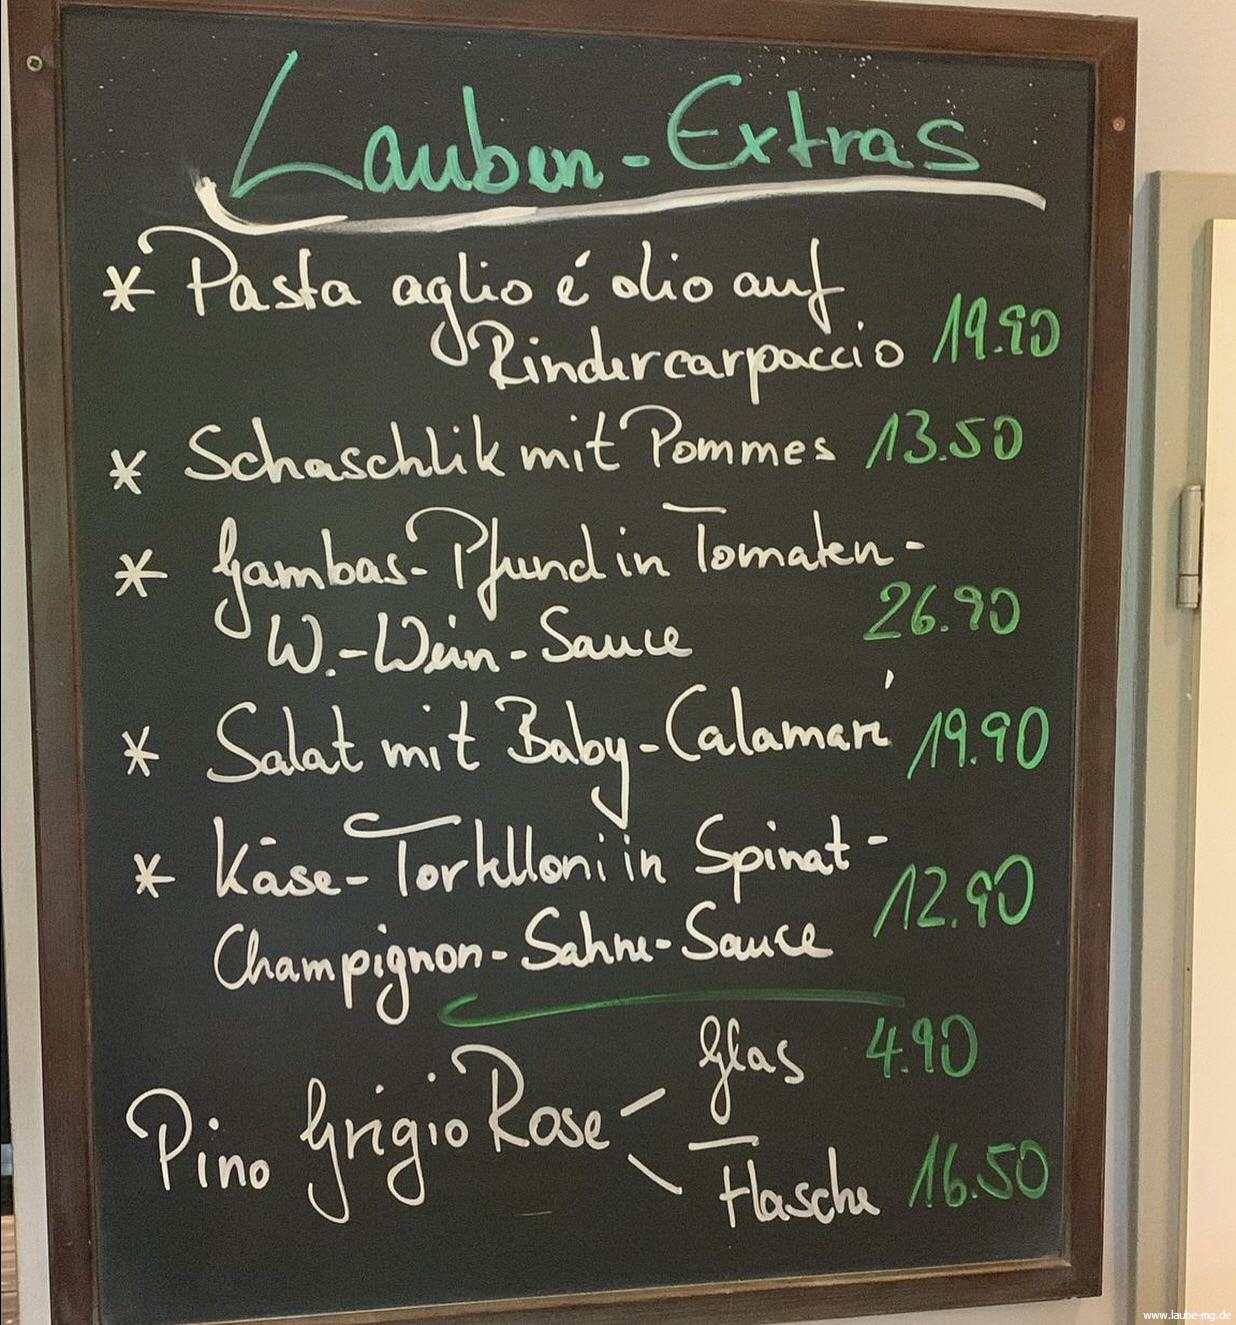 Lauben-Extras
* Pasta aglio é olio auf
Rindercarpaccio 19.90
* Schaschlik mit Pommes 13.50
* Gambas-Pfund in Tomaten-
W.-Wein-Sauce 26.90
* Salat mit Baby-Calamari 19.90
* Käse-Tortelloni in Spinat-
Champignon-Sahne-Sauce 12.90
Glas 4.90
Pino Grigio Rose
Flasche 16.50
www.laube-mg.de